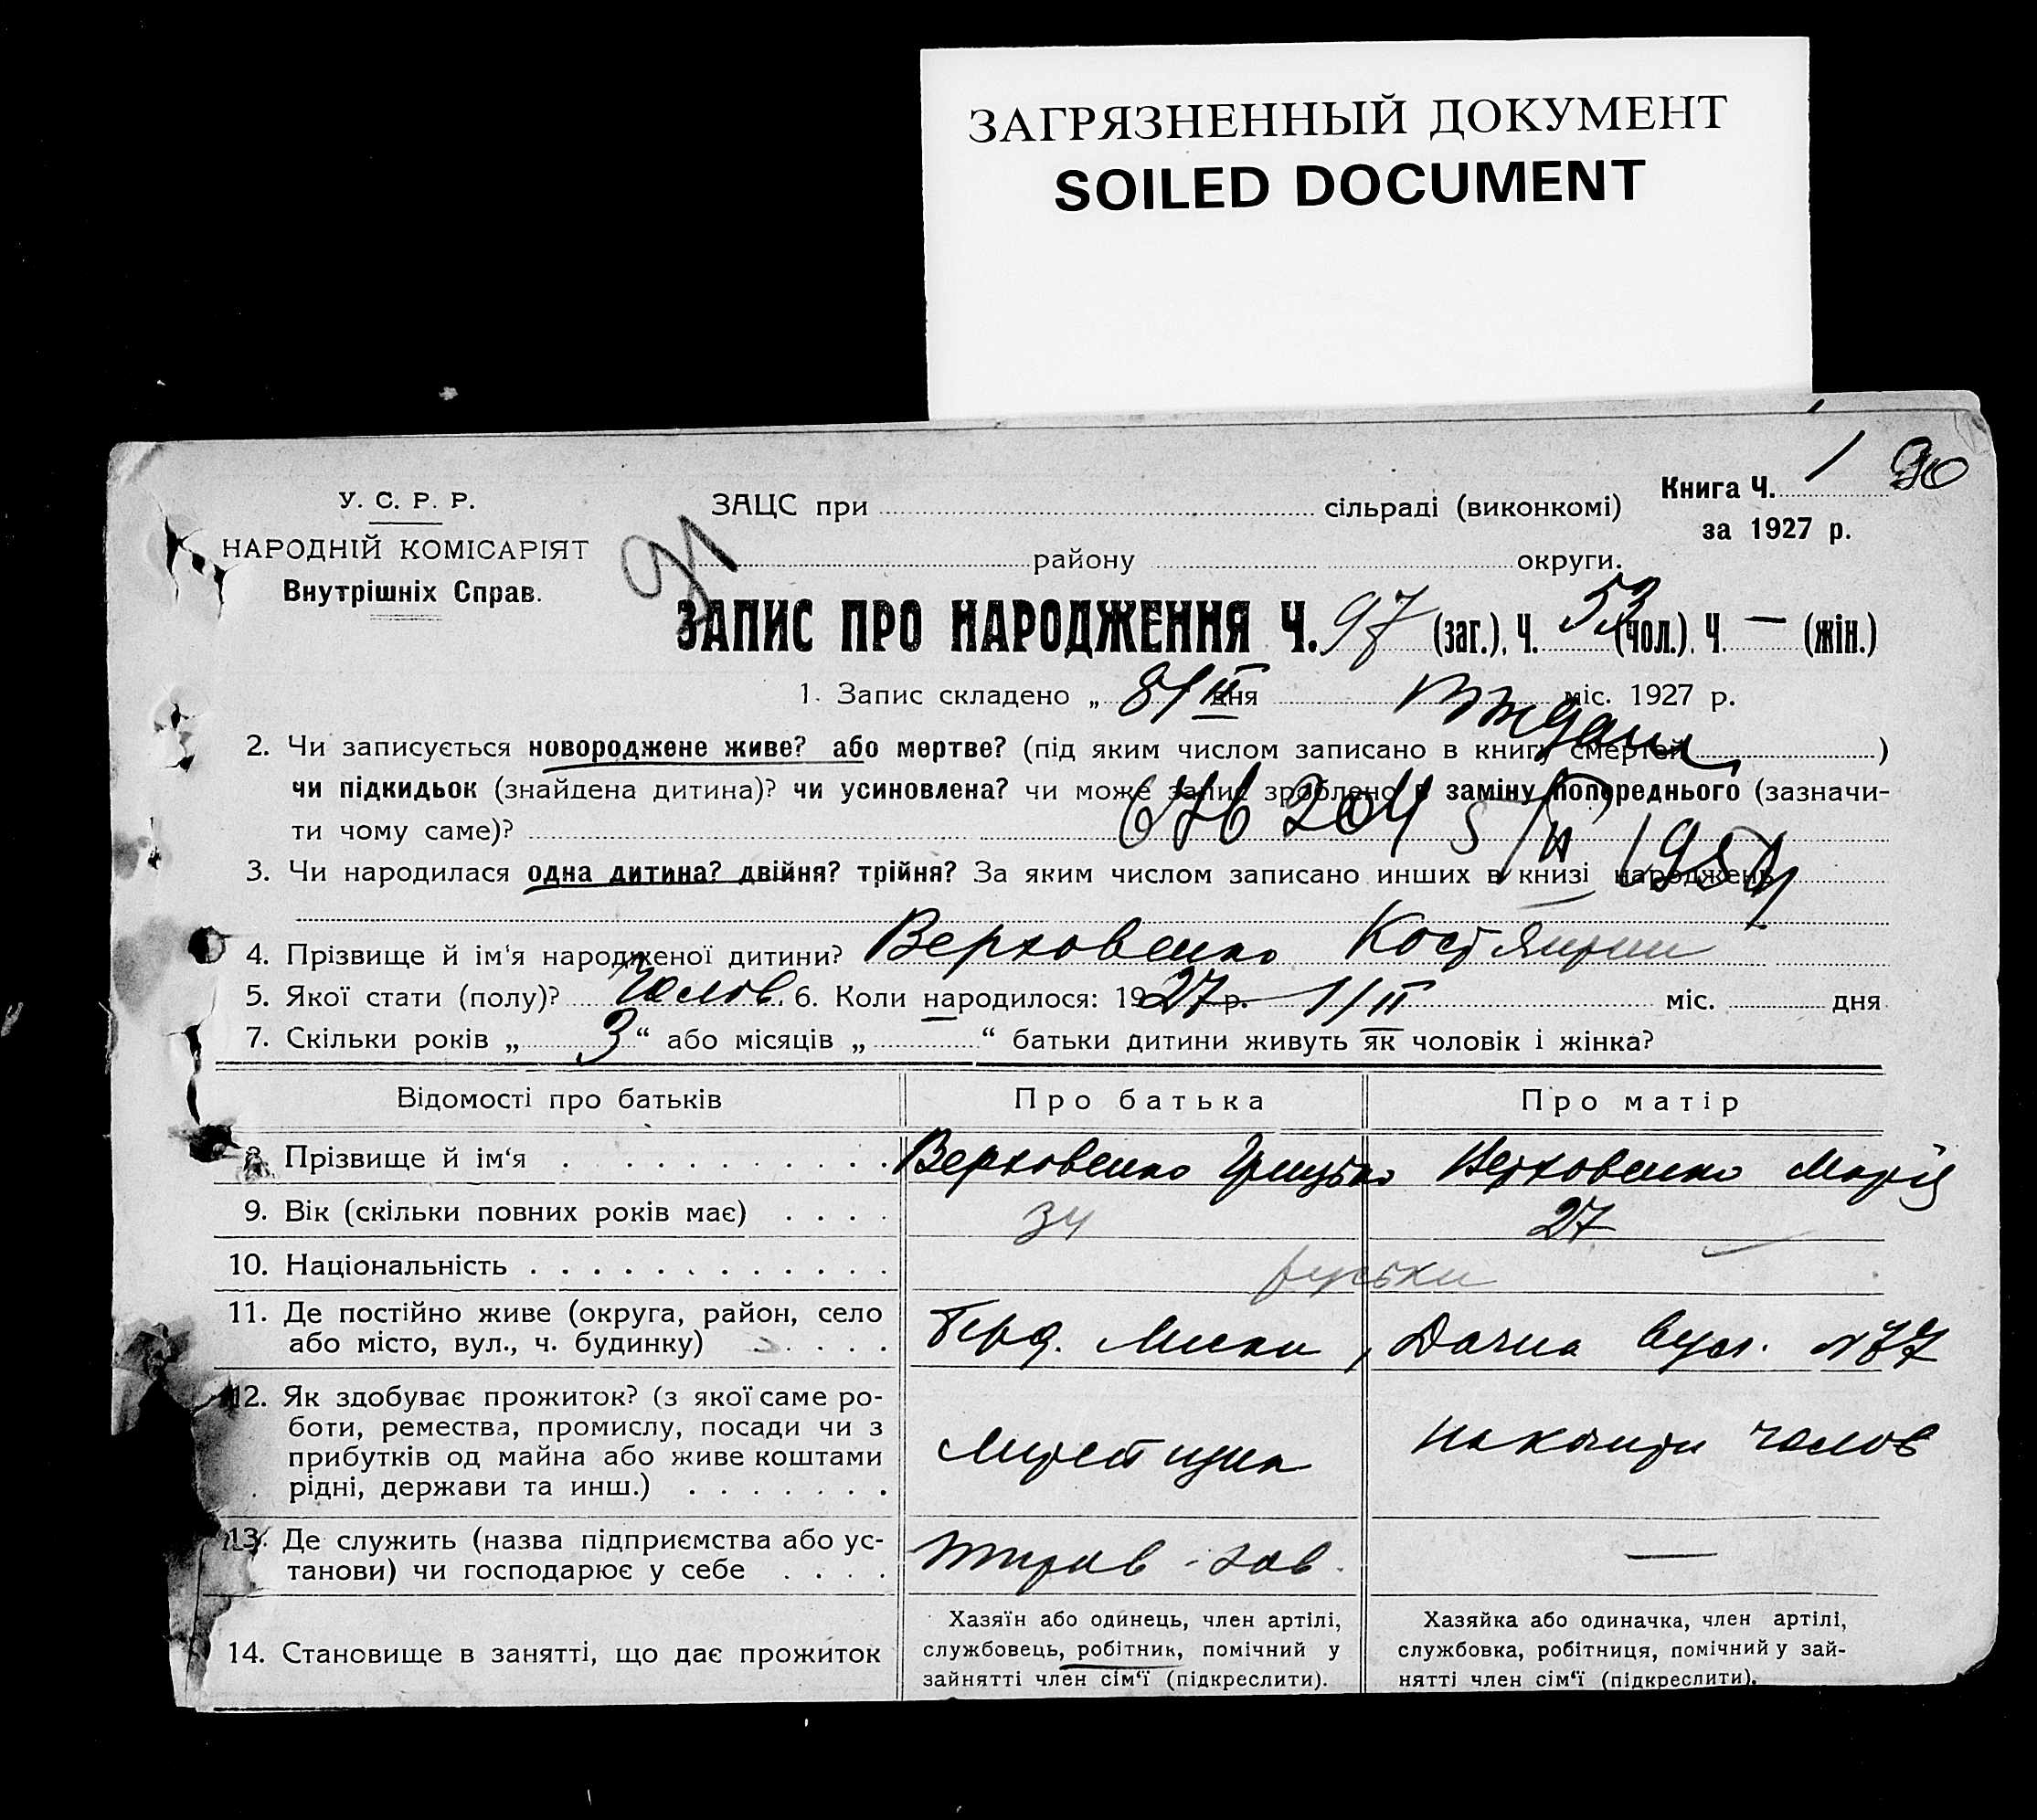 ЗАГРЯЗНЕННЫЙ ДОКУМЕНТ
SOILED DOCUMENT
У. С. Р. Р.
НАРОДНІЙ КОМІСАРІЯТ
Внутрішніх Справ.
91
ЗАЦС при сільраді (виконкомі)
району округи.
Книга Ч. 1 90
за 1927 р.
ЗАПИС ПРО НАРОДЖЕННЯ Ч. 97 (заг.), Ч. 53 (чол.), Ч. — (жін.)
1. Запис складено „ 8/II дня міс. 1927 р.
2. Чи записується новороджене живе? або мертве? (під яким числом записано в книгу смертей )
чи підкидьок (знайдена дитина)? чи усиновлена? чи може запис зроблено в заміну попереднього (зазначи-
ти чому саме)? 204 1954
3. Чи народилася одна дитина? двійня? трійня? За яким числом записано инших в книзі народжень
4. Прізвище й ім‘я народженої дитини? Верховенко Костянтин
5. Якої стати (полу)? Чолов. 6. Коли народилося: 1927 р. 1/II міс. дня
7. Скільки років „ 3 “ або місяців „ “ батьки дитини живуть як чоловік і жінка?
Відомості про батьків Про батька Про матір
8. Прізвище й ім‘я Верховенко Грицько Верховенко Марія
9. Вік (скільки повних років має) 34 27
10. Національність руськи
11. Де постійно живе (округа, район, село
або місто, вул., ч. будинку) Берд. Лиски, Дачна вул. № 77
12. Як здобуває прожиток? (з якої саме ро-
боти, ремества, промислу, посади чи з
прибутків од майна або живе коштами
рідні, держави та инш.) на кошти чолов
13. Де служить (назва підприємства або ус-
танови) чи господарює у себе зав. —
14. Становище в занятті, що дає прожиток
Хазяїн або одинець, член артілі,
службовець, робітник, помічний у
зайнятті член сім‘ї (підкреслити).
Хазяйка або одиначка, член артілі,
службовка, робітниця, помічний у зай-
нятті член сім‘ї (підкреслити).